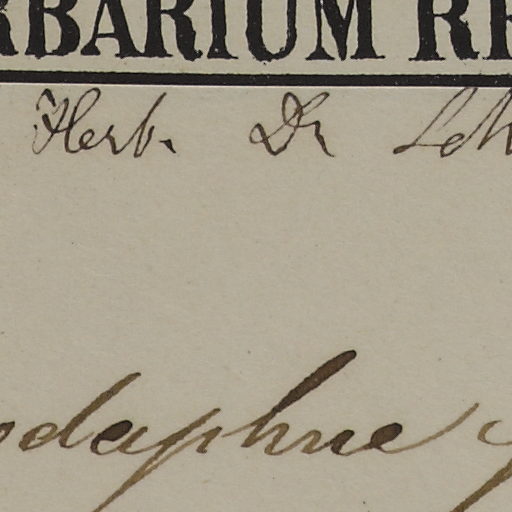 RBARIUM RE
Herb. Dr Sch
odaphne